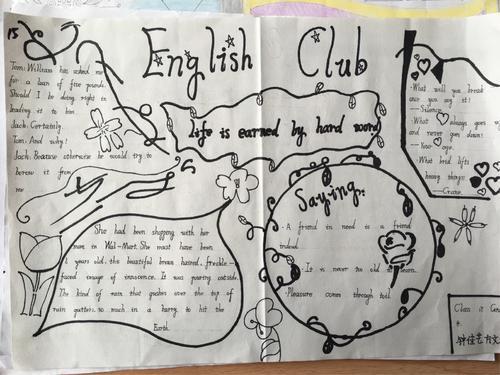 15
English Club
Tom: William has asked me
for a loan of five pounds.
Should I be doing right in
lending it to him
Jack: Certainly.
Tom: And why?
Jack: Because otherwise he would try to
borow it from
me
life is earned by hard word
What will you break
once you say it!
— Silence
What always goes
and never goes down!
— Your age.
What bird lifts
heavy things
— Crane.
Saying:
A friend in need is a friend
indeed.
It is never too old to learn.
Pleasure comes through toil
She had been shopping with her
mum in Wal-Mart. She must have been
years old, the beautiful brown haired, freckle -
faced image of innocence. It was pouring outside.
The kind of rain that gushes over the top of
rain gutters, so much in a harry to hit the
Earth.
Class is